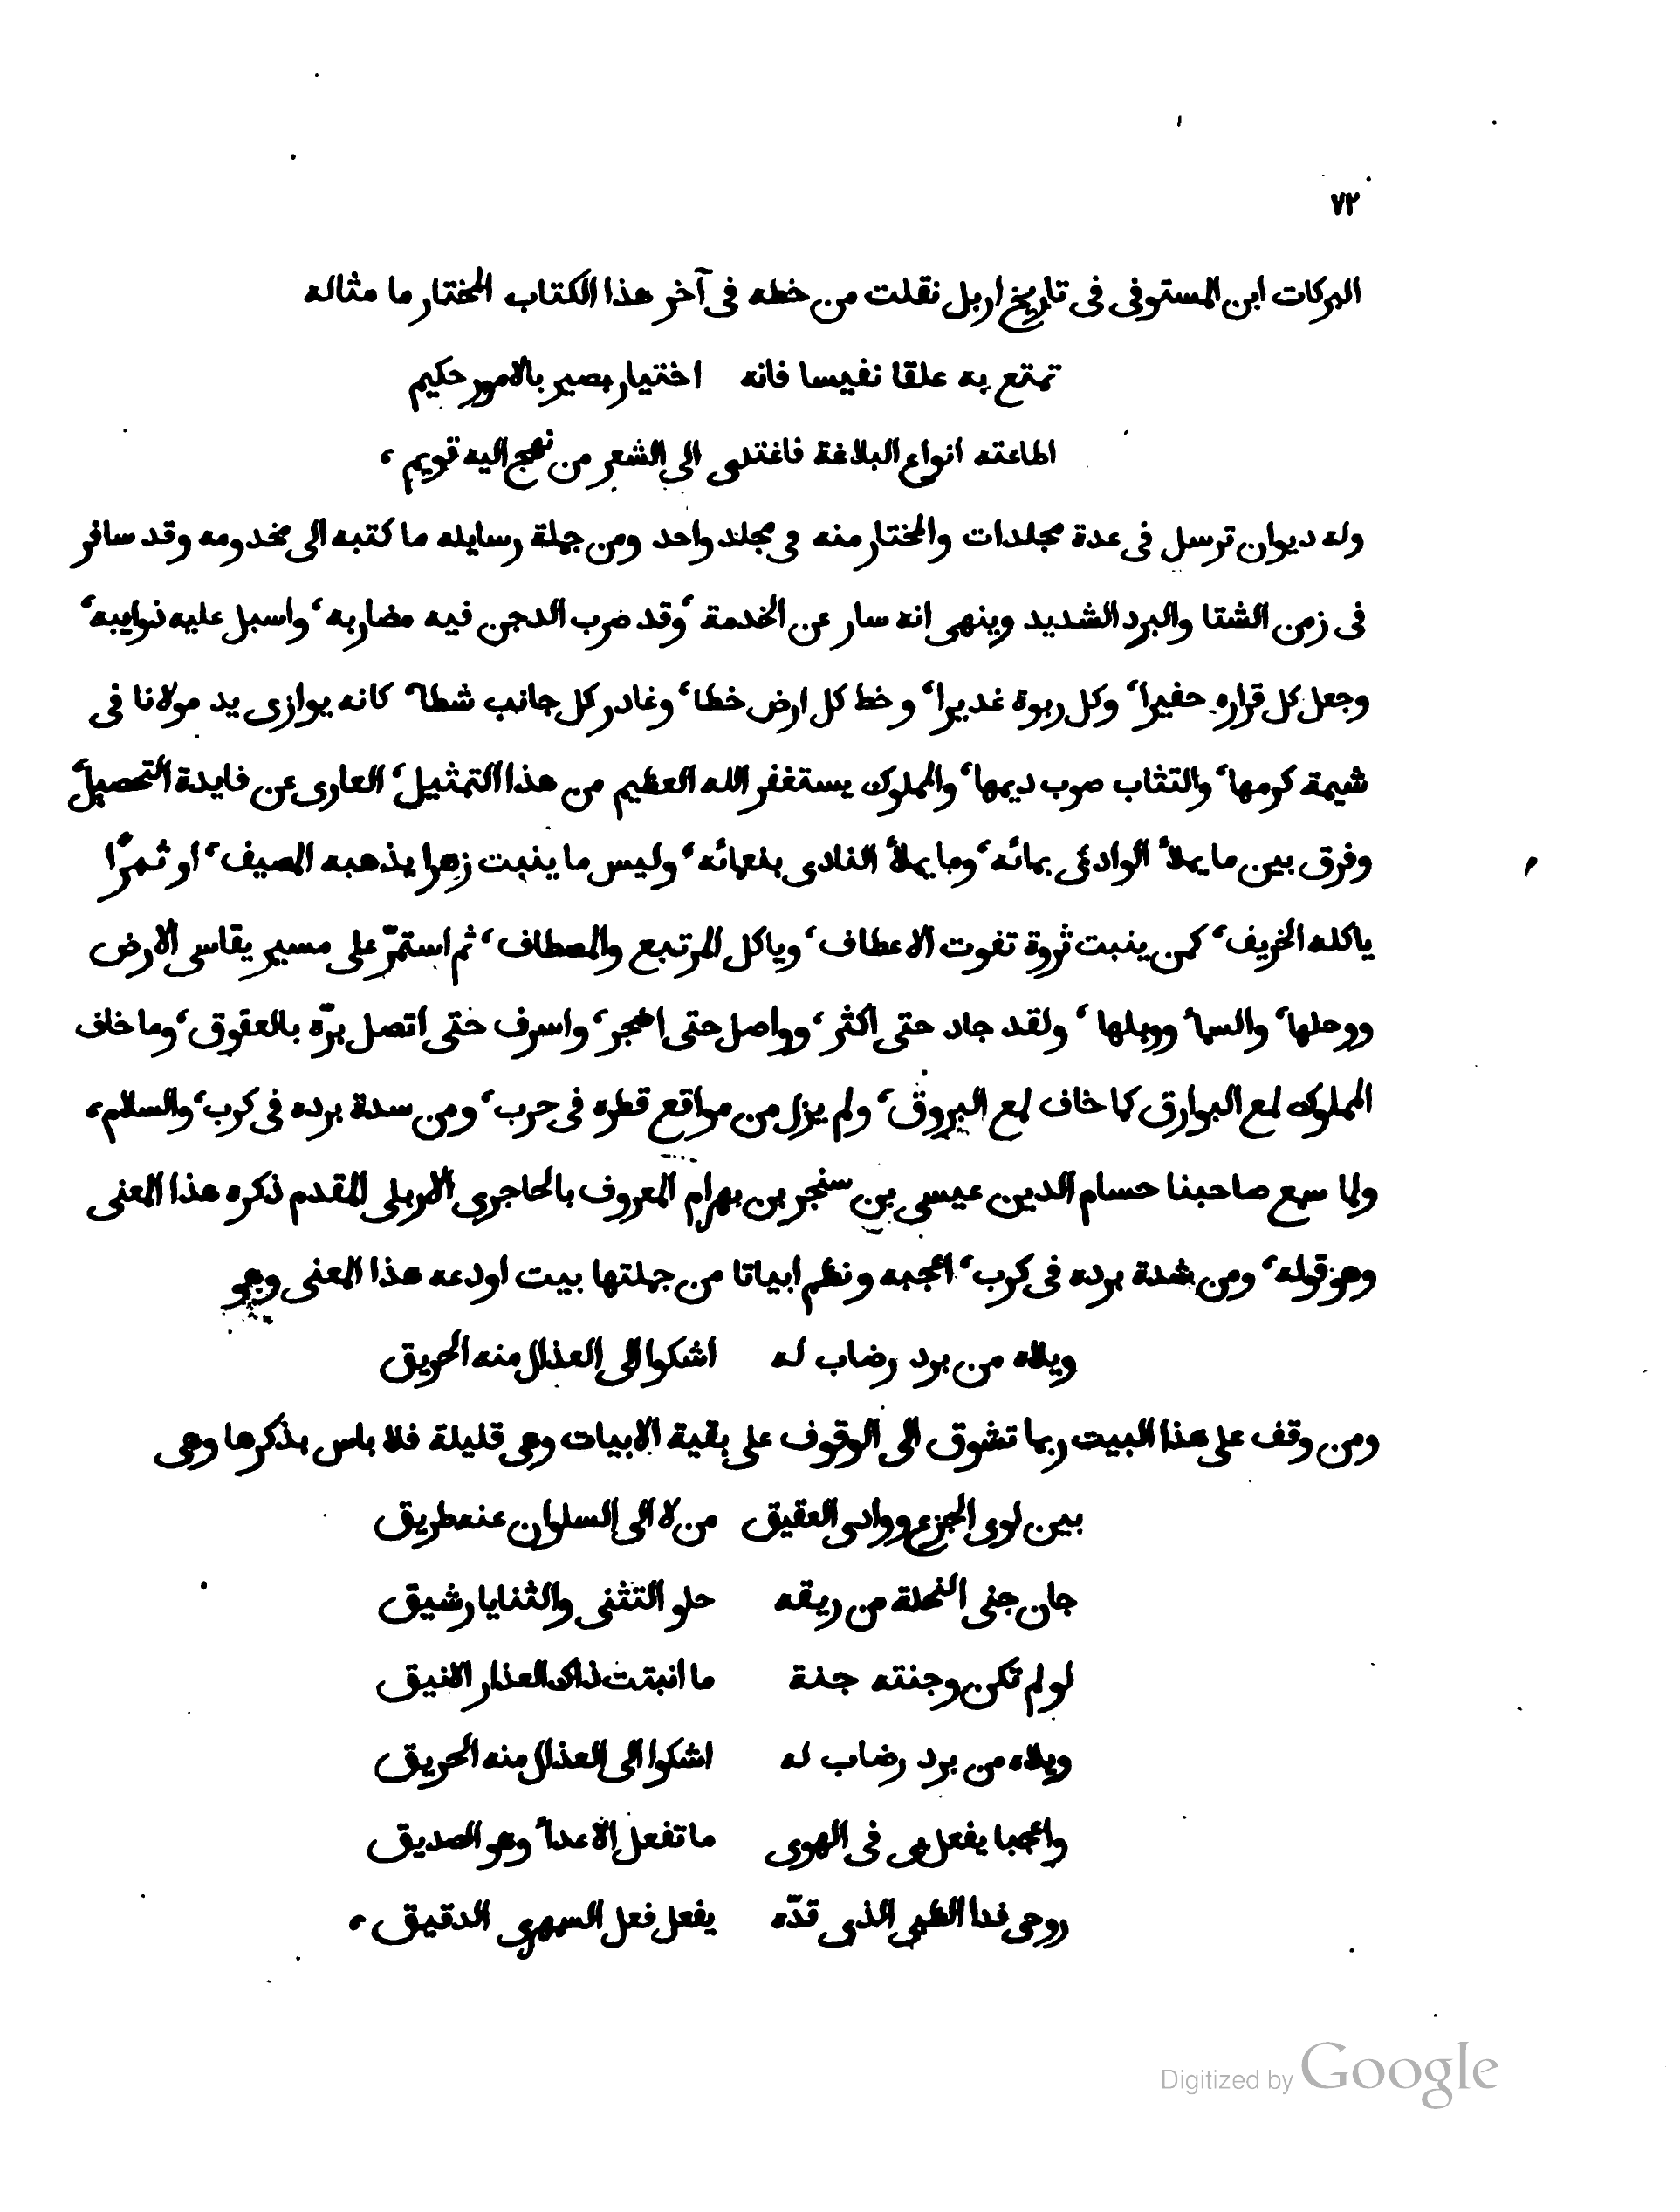 ٧٢
البركات ابن المستوفى فى تاريخ اربل نقلت من خطه فى آخر هذا الكتاب المختار ما مثاله
تمتع به علقا نفيسا فانه اختيار بصير بالامور حكيم
اطاعته انواع البلاغة فاغتدى الى الشعر من نهج اليه قويم،
وله ديوان ترسل فى عدة مجلدات والمختار منه فى مجلد واحد ومن جملة رسايله ما كتبه الى مخدومه وقد سافر
فى زمن الشتا والبرد الشديد وينهى انه سار عن الخدمة، وقد ضرب الدجن فيه مضاربه، واسبل عليه ذوايبه،
وجعل كل قراره حفيرا، وكل ربوة غديرا، وخط كل ارض خطا، وغادر كل جانب شطا، كانه يوازى يد مولانا فى
شيمة كرمها، والتثاب صوب ديمها، والمملوك يستغفر الله العظيم من هذا التمثيل، العارى عن فايدة التحصيل،
وفرق بين ما يملأ الوادى بمائه، وما يملأ النادى بنعمائه، وليس ما ينبت زهرا يذهبه المصيف، او ثمرًا
ياكله الخريف، كمن ينبت ثروة تفوت الاعطاف، وياكل المرتبع والمصطاف، ثم استمرّ على مسير يقاسى الارض
ووحلها، والسمأ ووبلها، ولقد جاد حتى اكثر، وواصل حتى اضجر، واسرف حتى اتصل برّه بالعقوق، وما خاف
المملوك لمع البوارق كما خاف لمع البروق، ولم يزل من مواقع قطره فى حرب، ومن سدة برده فى كرب، والسلام،
ولما سمع صاحبنا حسام الدين عيسى بن سنجر بن بهرام المعروف بالحاجرى الاربلى المقدم ذكره هذا المعنى
وهو قوله، ومن شدة برده فى كرب، اعجبه ونظم ابياتا من جملتها بيت اودعه هذا المعنى وهو
ويلاه من برد رضاب له اشكوا الى العذال منه الحريق
ومن وقف على هذا البيت ربما تشوق الى الوقوف على بقية الابيات وهى قليلة فلا باس بذكرها وهى
بين لوى الجزع ووادى العقيق من لا الى السلوان عنه طريق
جان جنى النحلة من ريقه حلو التثنى والثنايا رشيق
لو لم تكن وجنته جنة ما انبتت ذاك العذار الانيق
ويلاه من برد رضاب له اشكوا الى العذال منه الحريق
واعجبا يفعل بى فى الهوى ما تفعل الاعدأ وهو الصديق
روحى فدا الظبى الذى قدّه يفعل فعل السمهرى الدقيق،
Digitized by Google